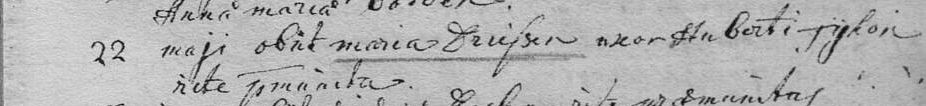 Anna maria
22 maji obiit maria Driessen uxor Huberti
rite pmunita.
rite præmunitus